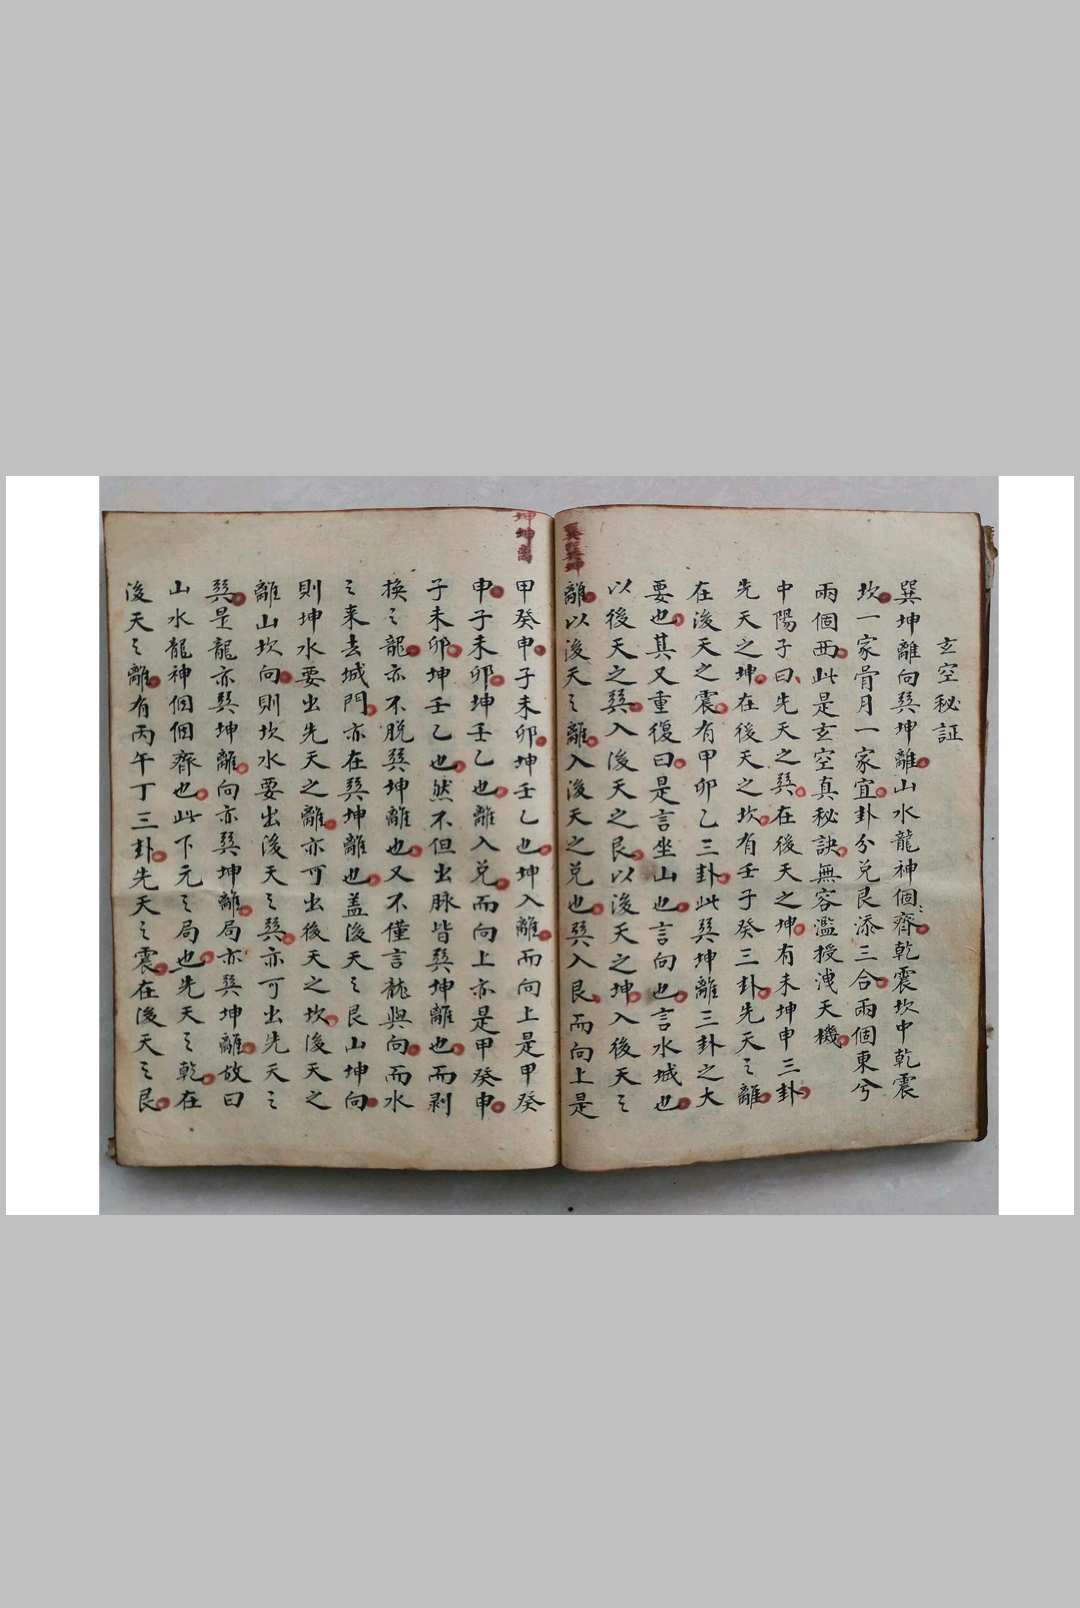 玄空秘証
巽坤離向巽坤離山水龍神個齊乾震坎中乾震
坎一家骨月一家宜卦分兌艮添三合兩個東兮
兩個西此是玄空真秘訣無容濫授洩天機
中陽子曰先天之巽在後天之坤有未坤申三卦
先天之坤在後天之坎有壬子癸三卦先天之離
在後天之震有甲卯乙三卦此巽坤離三卦之大
要也其又重復曰是言坐山也言向也言水城也
以後天之巽入後天之艮以後天之坤入後天之
離以後天之離入後天之兌也巽入艮而向上是
甲癸申子未卯坤壬乙也坤入離而向上是甲癸
申子未卯坤壬乙也離入兌而向上亦是甲癸申
子未卯坤壬乙也然不但出脉皆巽坤離也而剥
換之龍亦不脱巽坤離也又不僅言龍與向而水
之来去城門亦在巽坤離也盖後天之艮山坤向
則坤水要出先天之離亦可出後天之坎後天之
離山坎向則坎水要出後天之巽亦可出先天之
巽是龍亦巽坤離向亦巽坤離局亦巽坤離故曰
山水龍神個個齊也此下元之局也先天之乾在
後天之離有丙午丁三卦先天之震在後天之艮
坤坤离